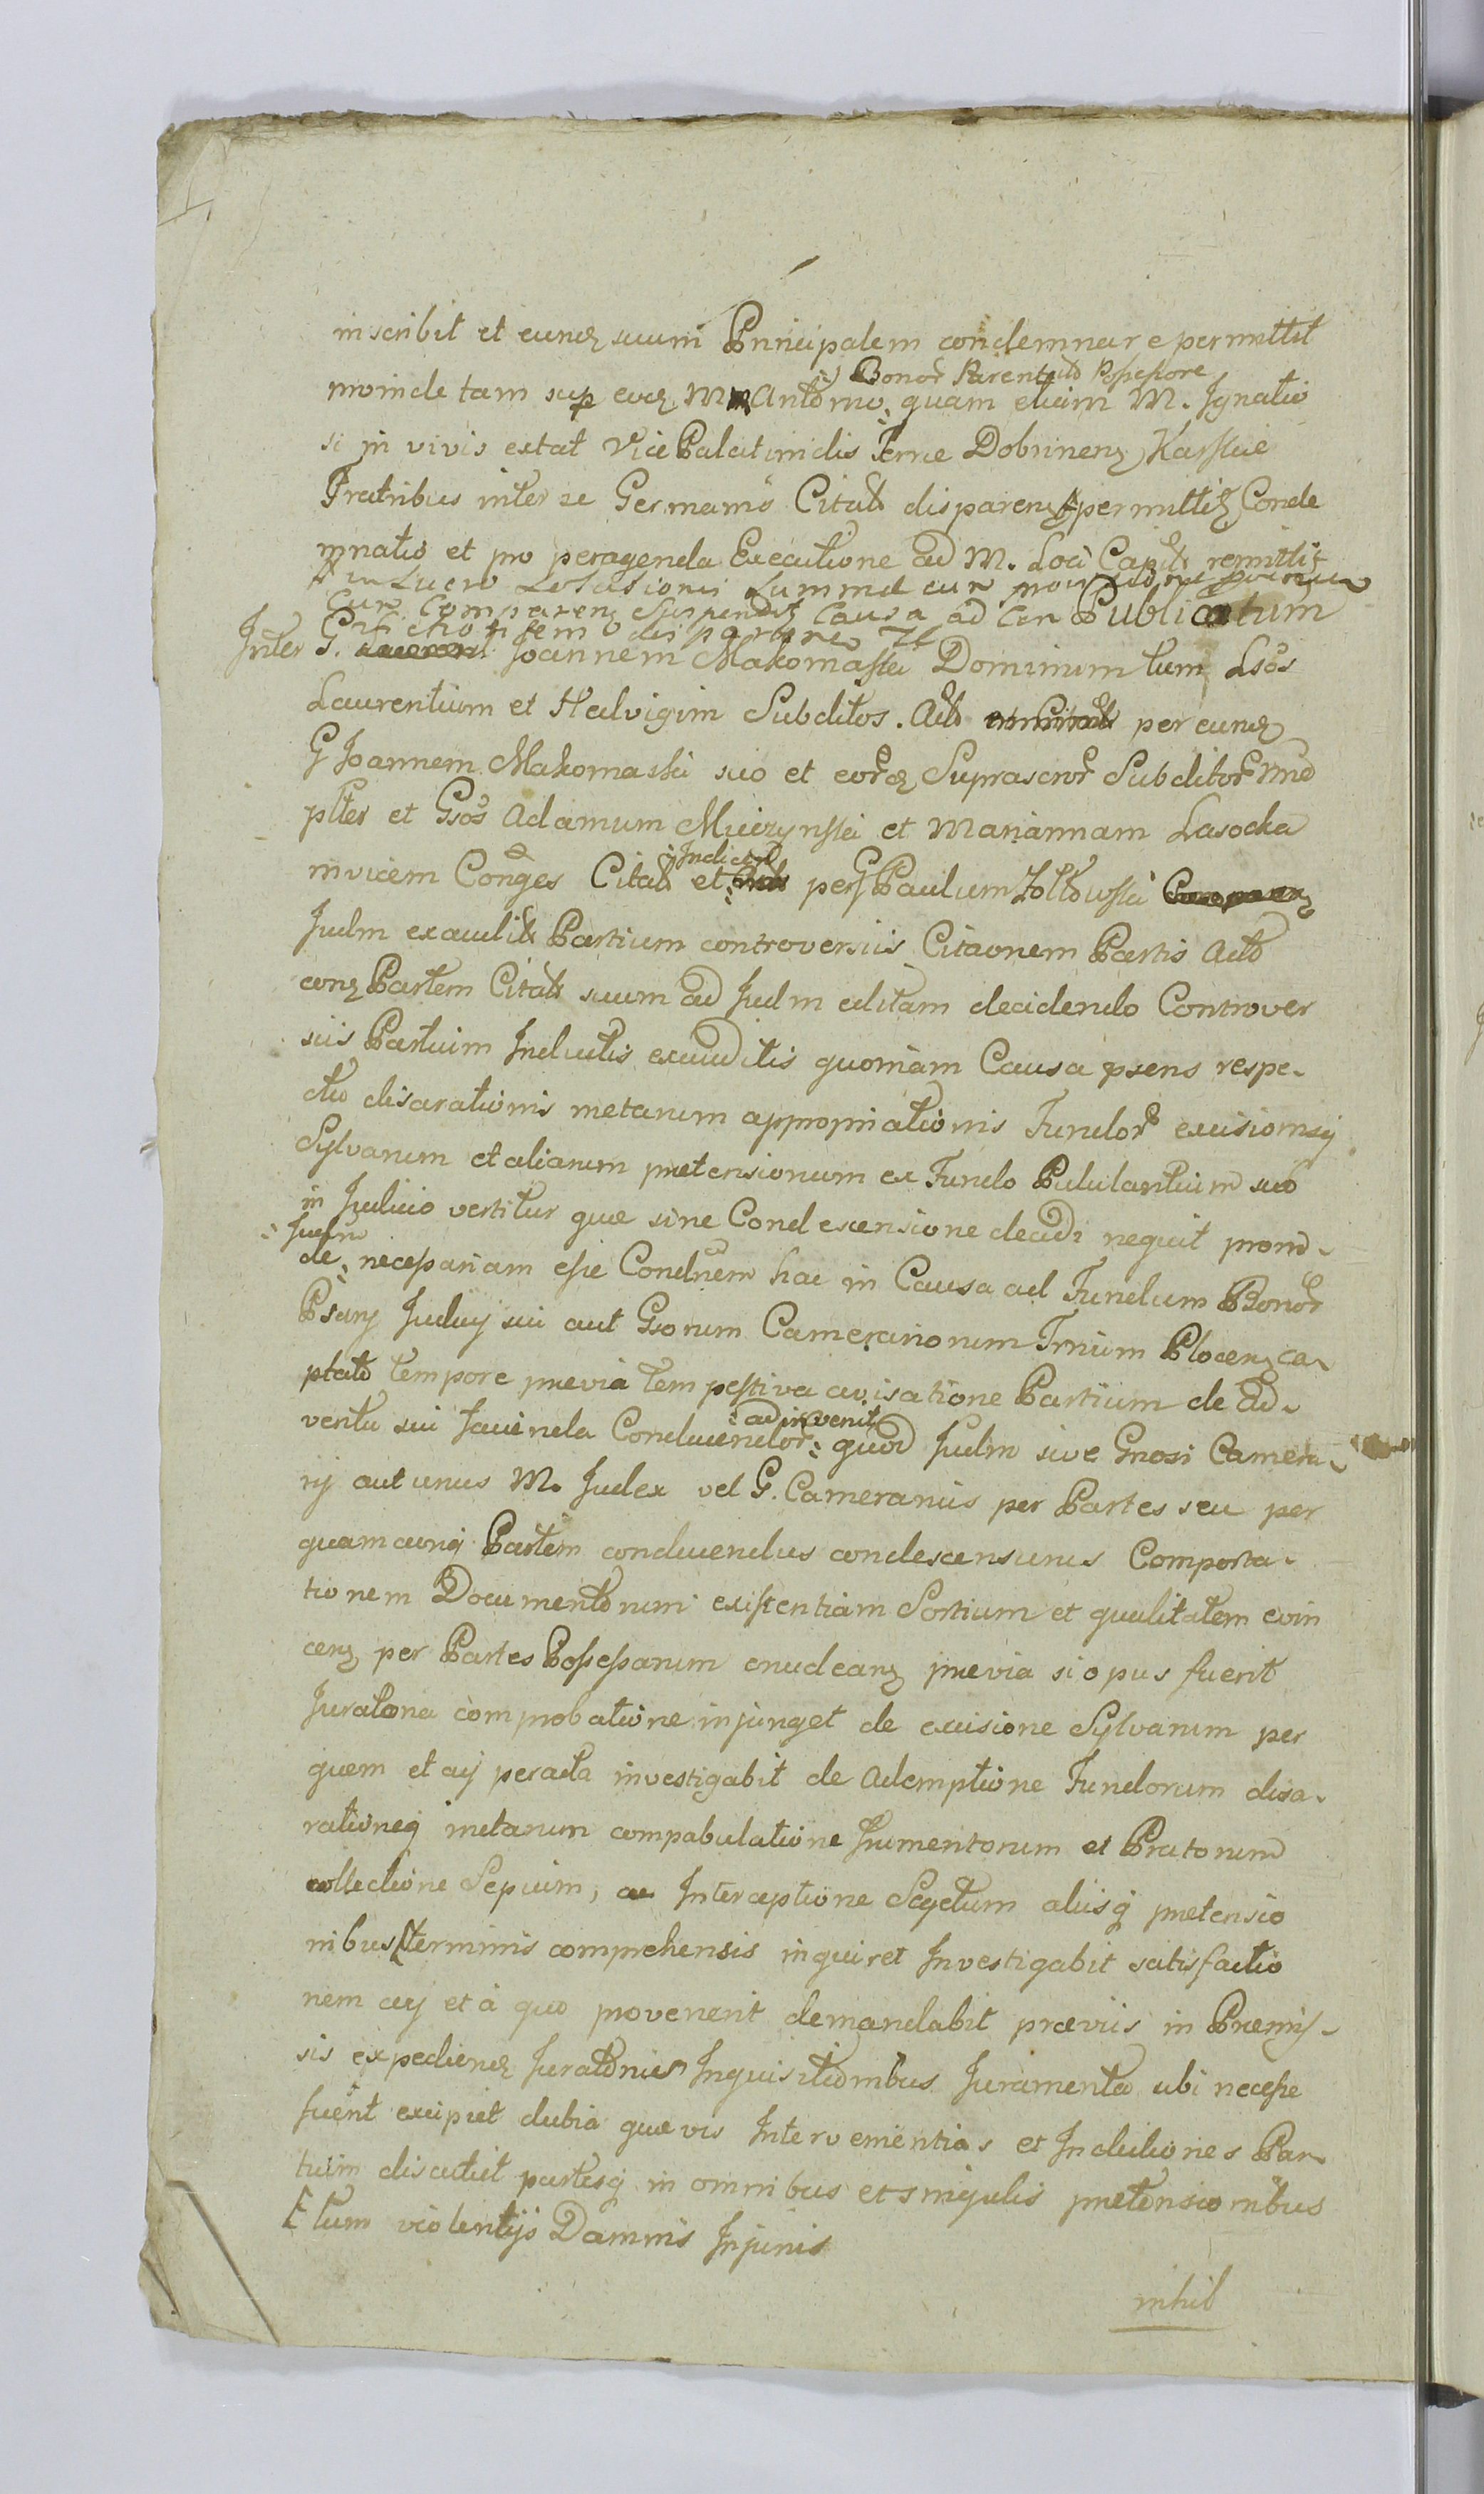 inscribit et eund suum Principalem condemnare permittit
Bonor Parental Possessore
proinde tam sup eod M Antonio quam etiam M. Ignatio
si in vivis extat Vice Palatinidis Terrae Dobrinen Karskie
Fratribus inter se Germanis Citat disparen permittit Conde
mnatis et pro peragenda Executione ad M. Loci Capit remittit
in Lucro
Cur Comparen Suspendit Causa ad Publicatum
disparitione
Inter G. Joannem Makomaski Dominum tum Lsos
Laurentium et Halvigim Subditos. Act per eund
G Joannem Makomaski suo et eord Suprascror Subditor nnd
plter et Gsos Adamum Mieczynski et Mariannam Lasocka
Inducta
invicem Conges Citat et per G Paulum Zoltowski
Judm exaudit Partium controversiis Citaonem Partis Act
con Partem Citat suum ad Judm editam decidendo Controver
siis Partium Inductis exauditis quoniam Causa psens respe-
ctu disarationis metarum appropriationis Fundor excisionisq
Sylvarum et aliarum pretensionum ex Fundo Pululantium suo
in Judicio vertitur quae sine Condescensione decidi nequit proin-
Judm
de necessariam esse Condnem hac in Causa ad Fundum Bonor
Psary Judicij sui aut Gsorum Camerariorum Trrium Plocen ca-
ptato tempore previa tempestiva avisatione Partium de ad-
adinvenit
ventu sui facienda Conducendor quod Judm sive Gnosi Camera-
rij aut unus M. Judex vel G. Camerarius per Partes seu per
quamcunq Partem conducendus condescensurus Comporta-
tionem Documentorum existentiam Sortium et qualitatem evin
cen per Partes Possessarum enudean previa si opus fuerit
Juratoria comprobatione injunget de excisione Sylvarum per
quem et cuj peracta investigabit de Ademptione Fundorum disa-
rationeq metarum compabulatione Frumentorum et Pratorum
collectione Sepium, ac Interceptione Scyctum aliisq pretensio
nibus terminis comprehensis inquiret Investigabit satisfactio
nem cuj et à quo provenerit demandabit praeviis in Premis-
sis expediend Juratoriis Inquisitionibus Juramenta ubi necesse
fuerit excipiet dubia quaevis Intervenientias et Inductiones Par-
tium discutiet partesq in omnibus et singulis pretensionibus
tum violentijs Damnis Injuriis
nihil